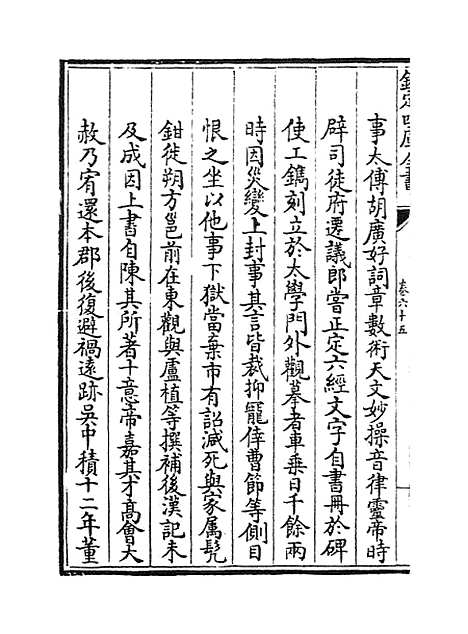 欽定四庫全書
卷六十五
事太傅胡廣好詞章數術天文妙操音律靈帝時
辟司徒府遷議郎嘗正定六經文字自書冊於碑
使工鐫刻立於太學門外觀摹者車乗日千餘兩
時因災變上封事其言皆裁抑寵倖曹節等側目
恨之坐以他事下獄當棄市有詔減死與家属髠
鉗徙朔方邕前在東觀與盧植等撰補後漢記未
及成因上書自陳其所著十意帝嘉其才髙會大
赦乃宥還本郡後復避禍逺跡吳中積十二年董